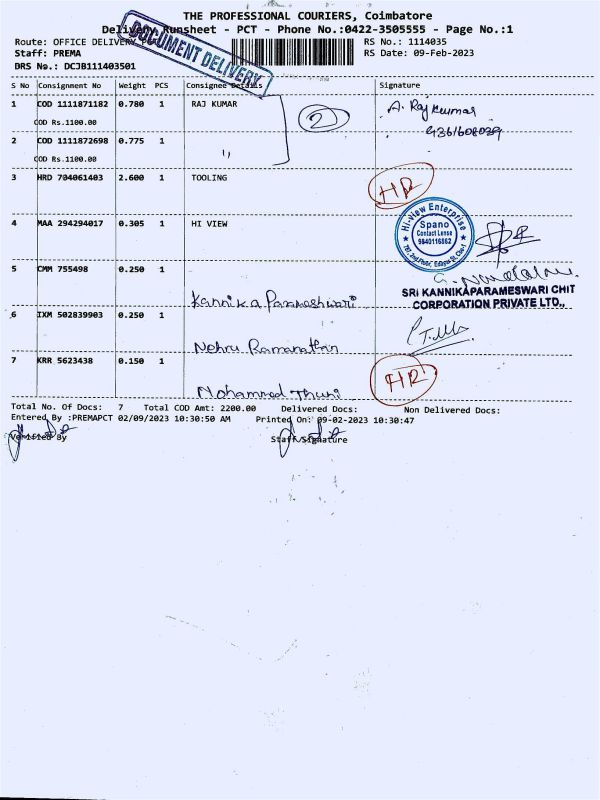 THE PROFESSIONAL COURIERS, Coimbatore
Delivery Runsheet - PCT - Phone No.:0422-3505555 - Page No.:1
DOCUMENT DELIVERY
Route: OFFICE DELIVERY
RS No.: 1114035
Staff: PREMA
RS Date: 09-Feb-2023
DRS No.: DCJB111403501
S No Consignment No Weight PCS Consignee Details Signature
1 COD 1111871182 0.780 1 RAJ KUMAR
COD Rs.1100.00
2
A. Raj kumar
2 COD 1111872698 0.775 1 "
COD Rs.1100.00
3 HRD 704061403 2.600 1 TOOLING
4 MAA 294294017 0.305 1 HI VIEW
Hi-View Enterprise
Spano
Contact Lense
9840116862
5 CMM 755498 0.250 1
Kannika Parameshwari
SRI KANNIKAPARAMESWARI CHIT
CORPORATION PRIVATE LTD.,
6 IXM 502839903 0.250 1
Nehru Ramanathan
7 KRR 5623438 0.150 1
Total No. Of Docs: 7 Total COD Amt: 2200.00 Delivered Docs: Non Delivered Docs:
Entered By :PREMAPCT 02/09/2023 10:30:50 AM Printed On: 09-02-2023 10:30:47
Verified By Staff Signature